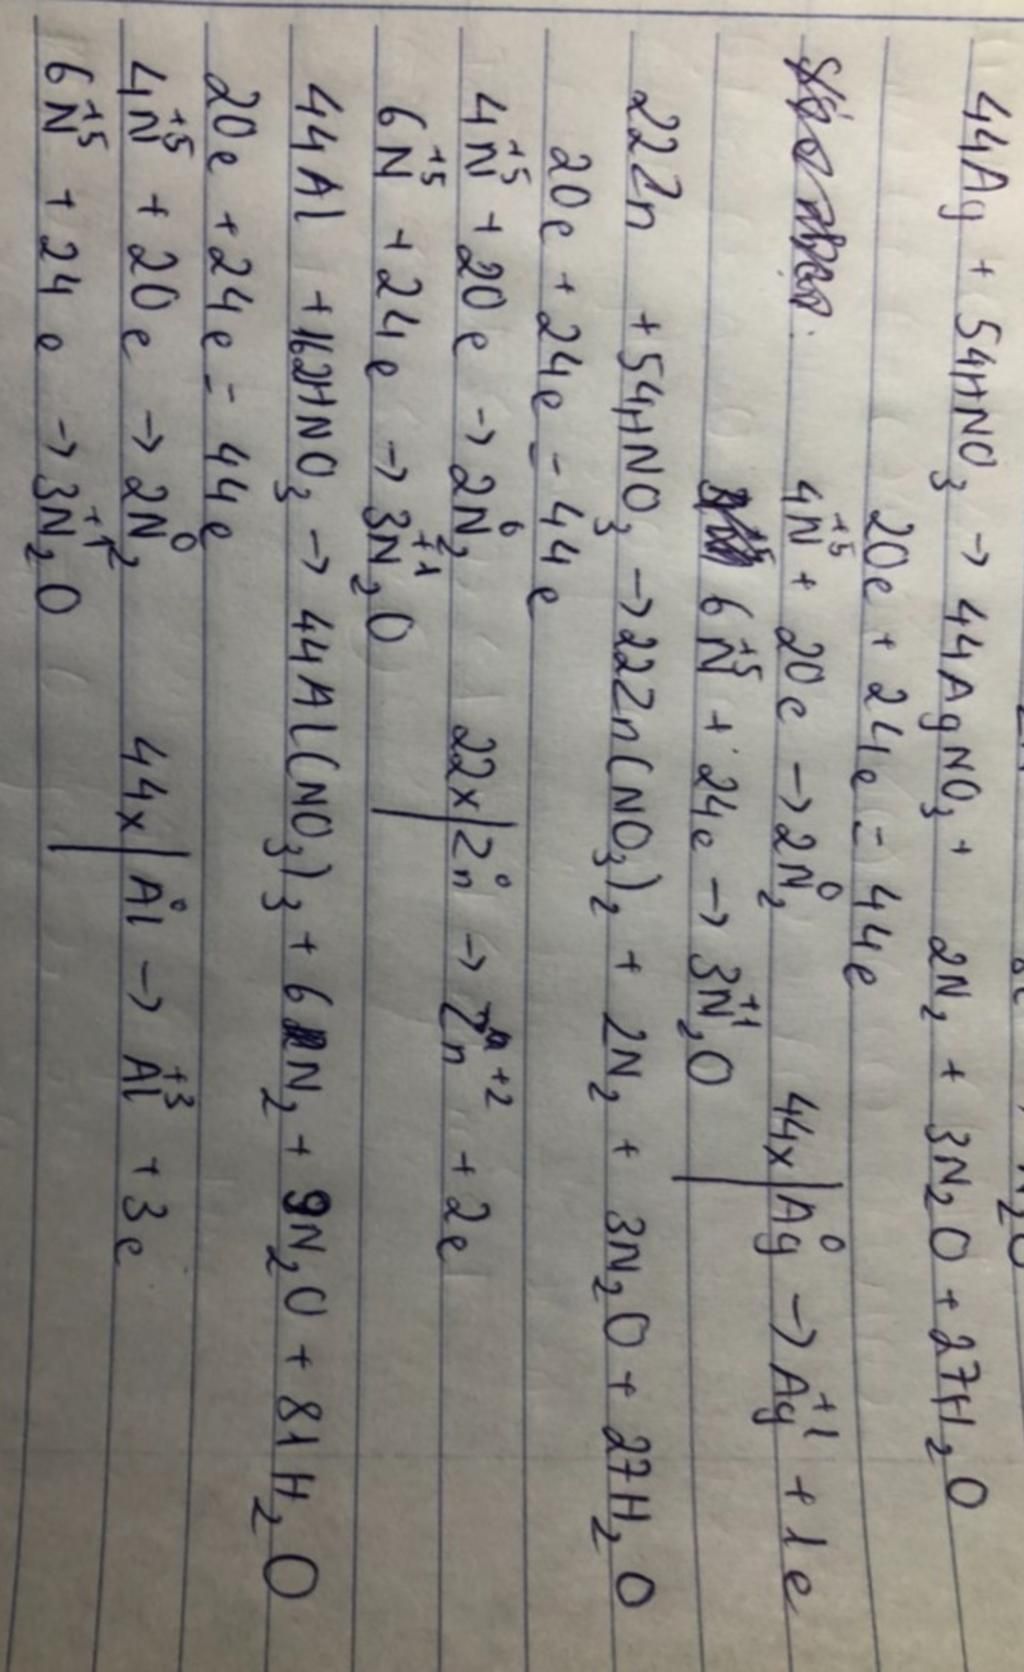 44Ag + 54HNO₃ → 44AgNO₃ + 2N₂ + 3N₂O + 27H₂O
20e + 24e = 44e
4N⁺⁵ + 20e → 2N₂⁰ 44x | Ag⁰ → Ag⁺¹ + 1e
6N⁺⁵ + 24e → 3N₂⁺¹O
22Zn + 54HNO₃ → 22Zn(NO₃)₂ + 2N₂ + 3N₂O + 27H₂O
20e + 24e = 44e
4N⁺⁵ + 20e → 2N₂⁰ 22x | Zn⁰ → Zn⁺² + 2e
6N⁺⁵ + 24e → 3N₂⁺¹O
44Al + 162HNO₃ → 44Al(NO₃)₃ + 6N₂ + 9N₂O + 81H₂O
20e + 24e = 44e
4N⁺⁵ + 20e → 2N₂⁰ 44x | Al⁰ → Al⁺³ + 3e
6N⁺⁵ + 24e → 3N₂⁺¹O